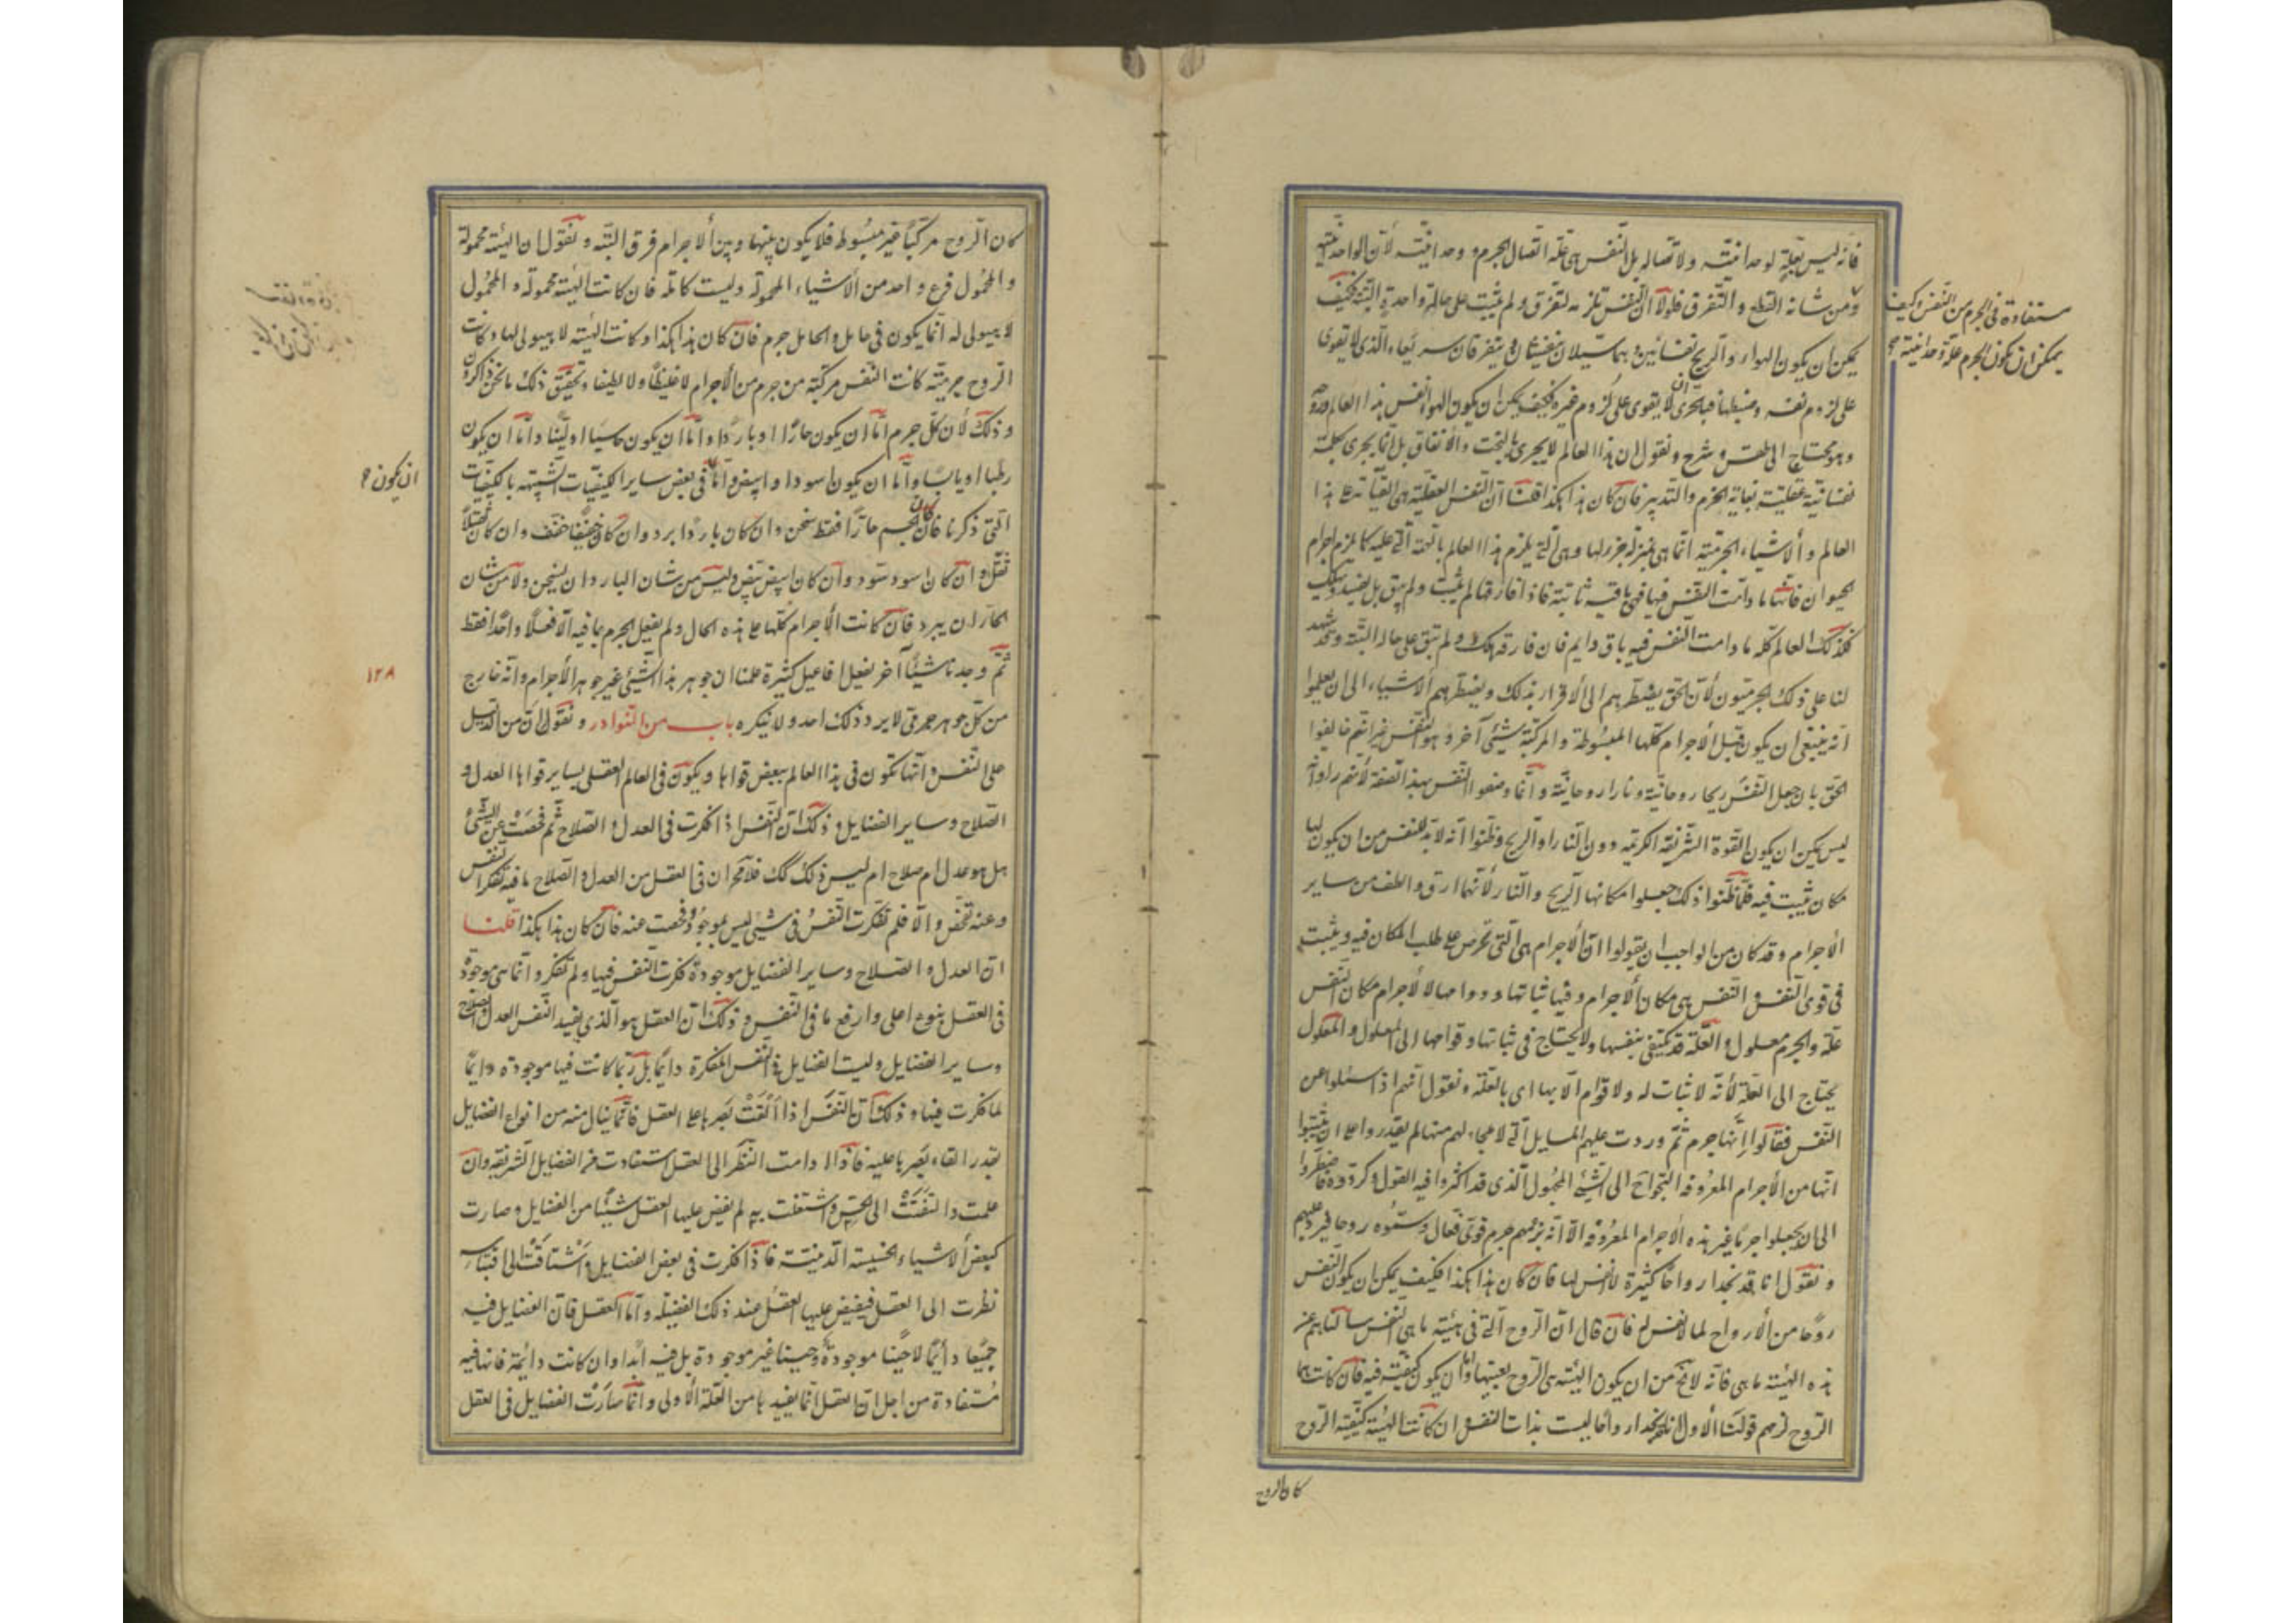 فانه ليس بعلة لوحدانيته ولا تصاله بل النفس هى علة اتصال الجرم ووحدانيته لأن الواحدانية
مستفادة فى الجرم من النفس وكيف
يمكن ان يكون الجرم علة وحدانيته
ومن شانه التقطع والتفرق فلولا ان النفس تلزمه لتفرق ولم يثبت على حالة واحدة البتة فكيف
يمكن ان يكون الهواء والريح نفسانيين وهما سيلان ينفشان ويتفرقان سريعا والذى لا يقوى
على لزوم نفسه وضبطها فبالحرى ان لا يقوى على لزوم غيره فكيف يمكن ان يكون الهواء نفس هذا العالم وروحه
وهو محتاج الى طقس وشرح ونقول ان هذا العالم لا يجرى بالبخت والاتفاق بل انما يجرى بكلمة
نفسانية عقلية بغاية الحزم والتدبير فان كان هذا هكذا قلنا ان النفس العقلية هى القيمة على هذا
العالم والأشياء الجرمية انما هى بمنزلة جزء لها وهى التى يلزم هذا العالم بالهيئة التى عليه كما يلزم اجرام
الحيوان فانها ما دامت النفس فيها فهى باقية ثابتة فاذا فارقتها لم يثبت ولم يبق بل يفسد ويهلك
فكذلك العالم كله ما دامت النفس فيه باق دايم فان فارقته هلك ولم تبق على حاله البتة وقد شهد
لنا على ذلك الجرميون لأن الحق يضطرهم الى الأقرار بذلك ويضطرهم الأشياء الى ان يعلموا
انه ينبغى ان يكون قبل الأجرام كلها المبسوطة والمركبة شيئ آخر وهو النفس غير انهم خالفوا
الحق بان جعل النفس ريحا روحانية ونارا روحانية وانما وصفوا النفس بهذه الصفة لأنهم راوا انه
ليس يمكن ان يكون القوة الشريفة الكريمة دون النار او الريح وظنوا انه لا بد للنفس من ان يكون لها
مكان يثبت فيه فلما ظنوا ذلك جعلوا مكانها الريح والنار لأنهما ارق والطف من ساير
الأجرام وقد كان من الواجب ان يقولوا ان الأجرام هى التى تحرص على طلب المكان فيه ويثبت
فى قوى النفس والنفس هى مكان الأجرام وفيها ثباتها ودوامها لا الأجرام مكان النفس
علة والجرم معلول والعلة قد يكتفى بنفسها ولا يحتاج فى ثباتها وقوامها الى المعلول والمعلول
يحتاج الى العلة لأنه لا ثبات له ولا قوام الا بها اى بالعلة ونقول انهم اذا سئلوا عن
النفس فقالوا انها جرم ثم وردت عليهم المسايل التى لا ملجاء لهم منها لم يقدروا على ان يثبتوا
انها من الأجرام المعروفة التجوا الى الشيئ المجهول الذى قد اكثروا فيه القول وكرروه فاضطروا
الى ان يجعلوا جرما غير هذه الأجرام المعروفة الا انه بزعمهم جرم قوى فعال وسموه روحا فيرد عليهم
ونقول انا قد نجد ارواحا كثيرة لا نفس لها فان كان هذا هكذا فكيف يمكن ان يكون النفس
روحا من الأرواح لما لا نفس له فان قال ان الروح التى فى هيئة ما هى النفس سالناهم عن
هذه الهيئة ما هى فانه لا يخلو من ان يكون الهيئة هى الروح بعينها واما ان يكون كيفية فيه فان كانت هى
الروح لزمهم قولنا الأول انا نجد ارواحا ليست بذات النفس وان كانت الهيئة كيفية الروح
كان الروح
كان الروح مركبا غير مبسوط فلا يكون بينها وبين الأجرام فرق البتة ونقول ان الهيئة محمولة
والمحمول فرع واحد من الأشياء المحمولة وليست كاملة فان كانت الهيئة محمولة والمحمول
لا هيولى له انما يكون فى حامل والحامل جرم فان كان هذا هكذا وكانت الهيئة لا هيولى لها وكانت
الروح جرمية كانت النفس مركبة من جرم من الأجرام لا غليظا ولا لطيفا وتحقيق ذلك ما نحن ذاكرون
وذلك لأن كل جرم اما ان يكون حارا او باردا واما ان يكون جاسيا او لينا واما ان يكون
رطبا او يابسا واما ان يكون اسودا وابيض واما فى بعض ساير الكيفيات الشبيهة بالكيفيات
ان يكون
التى ذكرنا فان كان الجرم حارا فقط سخن وان كان باردا برد وان كان خفيفا خفف وان كان ثقيلا
ثقل وان كان اسود سود وان كان ابيض بيض وليس من شان البارد ان يسخن ولا من شان
الحار ان يبرد فان كانت الأجرام كلها على هذه الحال ولم يفعل الجرم بما فيه الا فعلا واحدا فقط
ثم وجدنا شيئا آخر يفعل افاعيل كثيرة علمنا ان جوهر هذا الشيئ غير جوهر الأجرام وانه خارج
١٢٨
من كل جوهر جرمى لا يرد ذلك احد ولا ينكره باب من النوادر ونقول ان من الدليل
على النفس وانها تكون فى هذا العالم ببعض قواها ويكون فى العالم العقلى بساير قواها العدل و
الصلاح وساير الفضايل وذلك ان النفس اذا فكرت فى العدل والصلاح ثم فحصت عن الشيئ
هل هو عدل ام صلاح ام ليس ذلك كك فلا محة ان فى العقل من العدل والصلاح ما فيه تفكر النفس
وعنه تفحص والا فلم تفكرت النفس فى شيئ ليس بموجود وفحصت عنه فان كان هذا هكذا قلنا
ان العدل والصلاح وساير الفضايل موجودة فكرت النفس فيها ولم تفكر وانما هى موجودة
فى العقل بنوع اعلى وارفع ما فى النفس وذلك ان العقل هو الذى يفيد النفس العدل والصلاح
وساير الفضايل وليست الفضايل فى النفس المفكرة دايما بل ربما كانت فيها موجودة دايما
لما فكرت فيها وذلك ان النفس اذا القت بصرها على العقل فانما ينال منه من انواع الفضايل
بقدر القاء بصرها عليه فاذا دامت النظر الى العقل استفادت من الفضايل الشريفة وان
علمت والتفتت الى الحس واشتغلت به لم يفض عليها العقل شيئا من الفضايل وصارت
كبعض الأشياء الخسيسة الدنية فاذا فكرت فى بعض الفضايل واشتاقت الى اقتباسه
نظرت الى العقل فيفيض عليها العقل عند ذلك الفضيلة واما العقل فان الفضايل فيه
جميعا دائما لا حينا موجودة وحينا غير موجودة بل فيه ابدا وان كانت دائمة فانها فيه
مستفادة من اجل ان العقل انما يفيدها من العلة الأولى وانما صارت الفضايل فى العقل